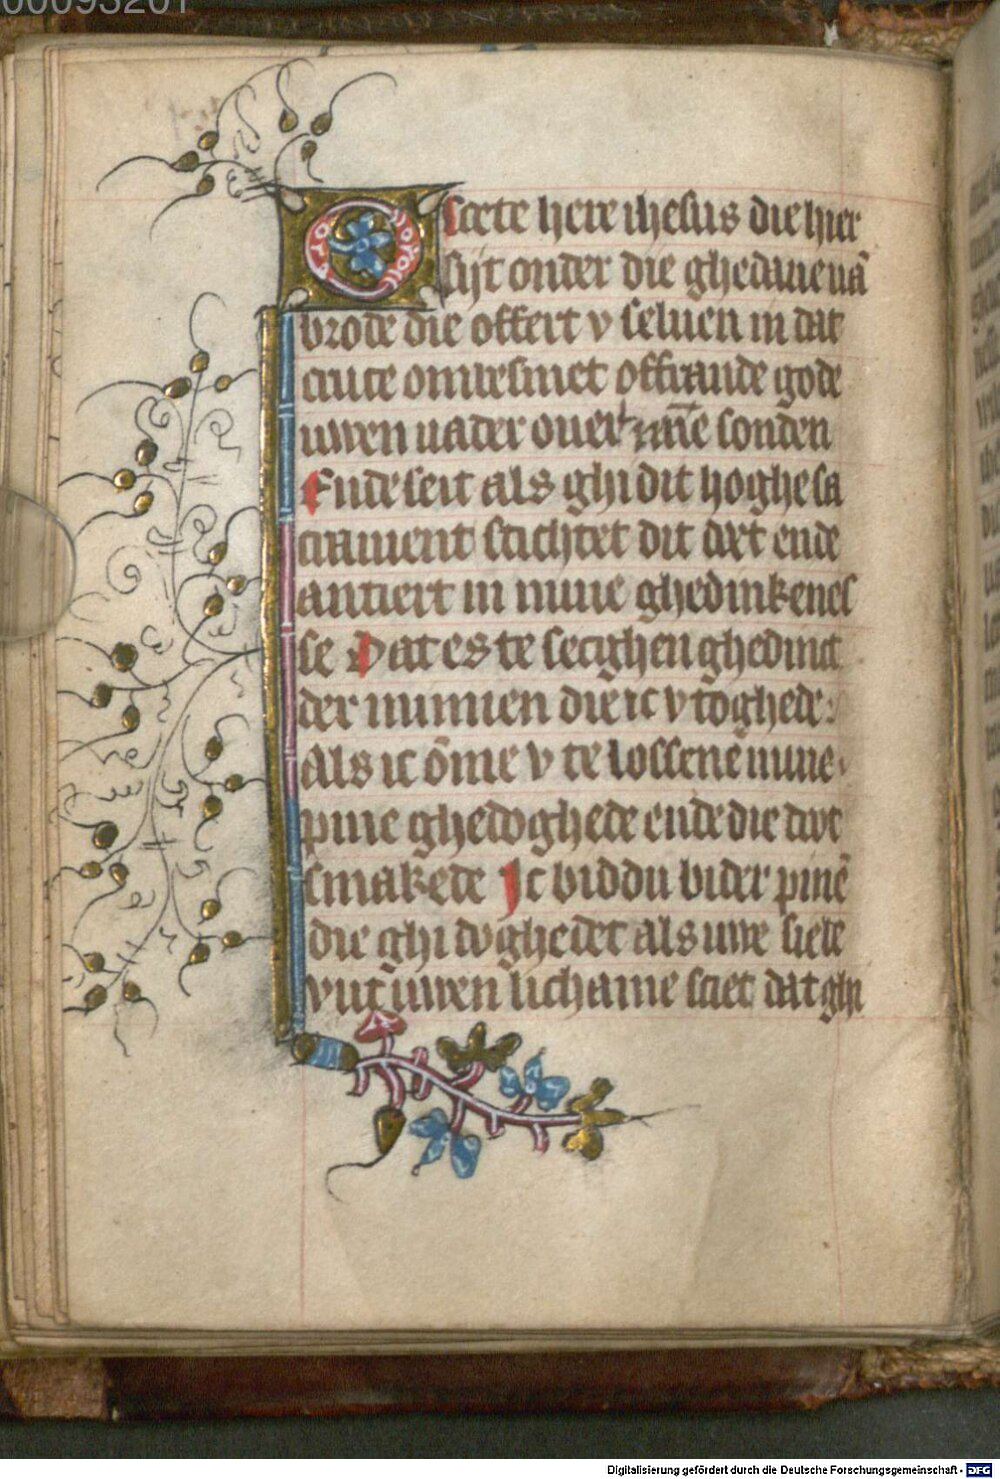 00093261
O Scete here ihesus die hier
sijt onder die ghedaue uā
brode die offert v seluen in dat
cruce omwesmet offrande gode
uwen uader ouer mine sonden
Ende seit als ghi dit hoghe sa
crament stichtet dit doet ende
antiert in mine ghedinkenes
se Dat es te secghen ghedinct
der minnen die ic v toghede:
Als ic ōme v te lossenē mine
pine ghedoghede ende die doot
smakede Ic biddu bi der pinē
die ghi doghedet als uwe siele
vut uwen lichame sciet dat ghi
Digitalisierung gefördert durch die Deutsche Forschungsgemeinschaft - DFG